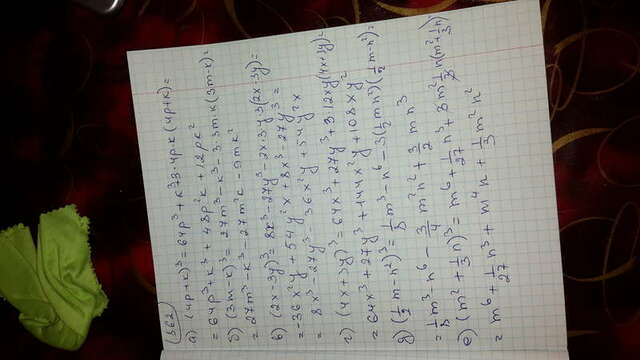 (362)
а) (4p+k)³ = 64p³+k³+3·4pk(4p+k) =
= 64p³+k³+48p²k+12pk²
б) (3m-k)³ = 27m³-k³-3·3mk(3m-k) =
= 27m³-k³-27m²k-9mk²
в) (2x-3y)³ = 8x³-27y³-2x·3y·3(2x-3y) =
= -36x²y+54y²x+8x³-27y³ =
= 8x³-27y³-36x²y+54y²x
г) (4x+3y)³ = 64x³+27y³+3·12xy(4x+3y) =
= 64x³+27y³+144x²y+108xy²
д) (½m-n²)³ = ⅛m³-n⁶-3(½mn²)(½m-n²) =
= ⅛m³-n⁶-¾m²n²+3/2mn³
е) (m²+⅓n)³ = m⁶+1/27n³+3m²⅓n(m²+⅓n)
= m⁶+1/27n³+m⁴n+⅓m²n²